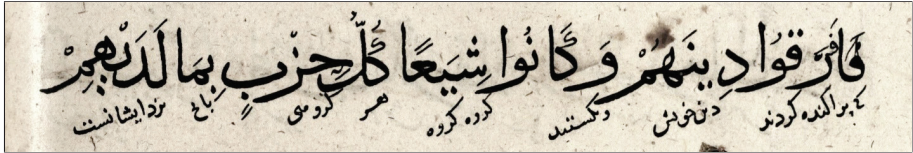 فَارَّقوُا دِينَهُمْ وَكَانُوا شِيَعًا كُلُّ حِزْبٍ بِمَا لَدَيْهِمْ
پراکنده کردند دین خویش وکشتند کروه کروه هر کروهی بآنج نزد ایشانست